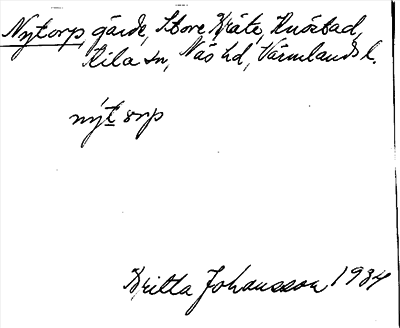 Nytorp, gärde, Store Kräte, Knöstad,
Kila sn, Näs hd, Värmlands l.
nýt orp
Britta Johansson 1934